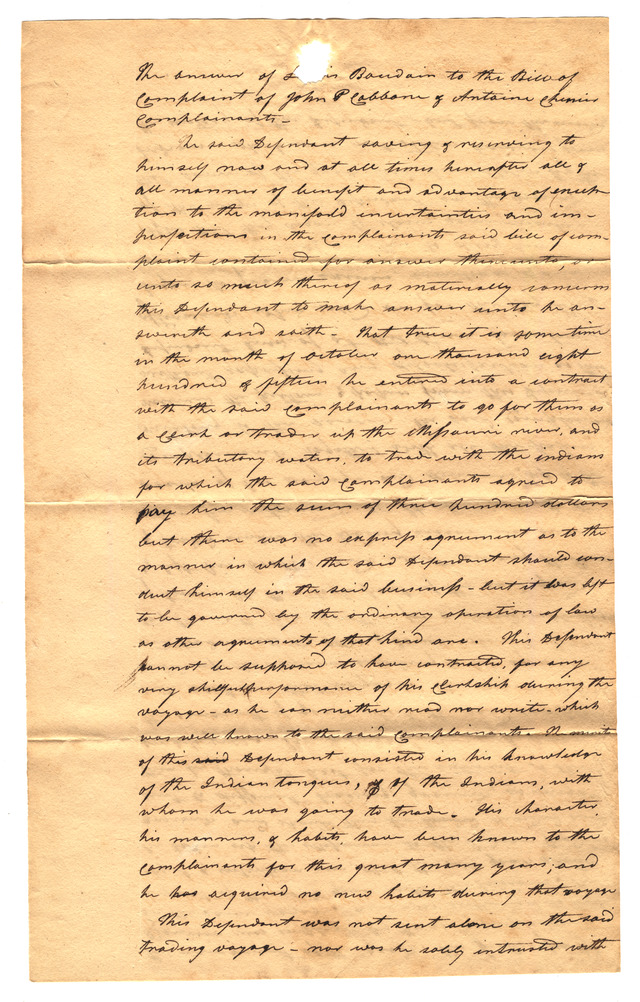 The answer of L is Baudain to the Bill of
Complaint of John P Cabbane & Antaine Chenier
Complainants —
The said Defendant saving & reserving to
himself now and at all times hereafter all &
all manner of benefit and advantage of excep
tion to the manifold incertainties and im-
perfections in the complainants said bill of com-
plaint contained for answer thereunto, or
unto so much thereof as materially concerns
this Defendant to make answer unto he an-
swereth and saith — that true it is some time
in the month of October one thousand eight
hundred & fifteen he entered into a contract
with the said complainants to go for them as
a Clerk or trader up the Missouri river, and
its tributory waters, to trade with the indians
for which the said Complainants agreed to
pay him the sum of three hundred dollars
but there was no express agreement as to the
manner in which the said Defendant should con-
duct himself in the said business — but it was left
to be governed by the ordinary operation of law
as other agreements of that kind are. This Defendant
cannot be supposed to have contracted, for any
very skilfull performance of his Clerkship during the
voyage — as he can neither read nor write — which
was well known to the said complainants. The merits
of this said Defendant consisted in his knowledge
of the Indian tongues, & of the Indians, with
whom he was going to trade. His character,
his manners, & habits, have been known to the
complainants for this great many years; and
he has acquired no new habits during that voyage
This Defendant was not sent alone on the said
trading voyage — nor was he solely intrusted with